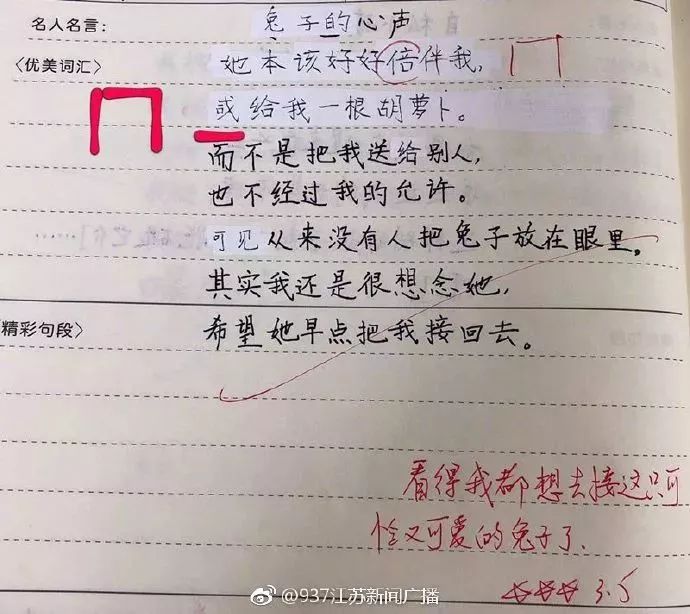 名人名言:
兔子的心声
〈优美词汇〉
她本该好好倍伴我,
或给我一根胡萝卜。
而不是把我送给别人,
也不经过我的允许。
可见从来没有人把兔子放在眼里。
其实我还是很想念她,
〈精彩句段〉
希望她早点把我接回去。
看得我都想去接这只可
怜又可爱的兔子了.
3.5
@937江苏新闻广播